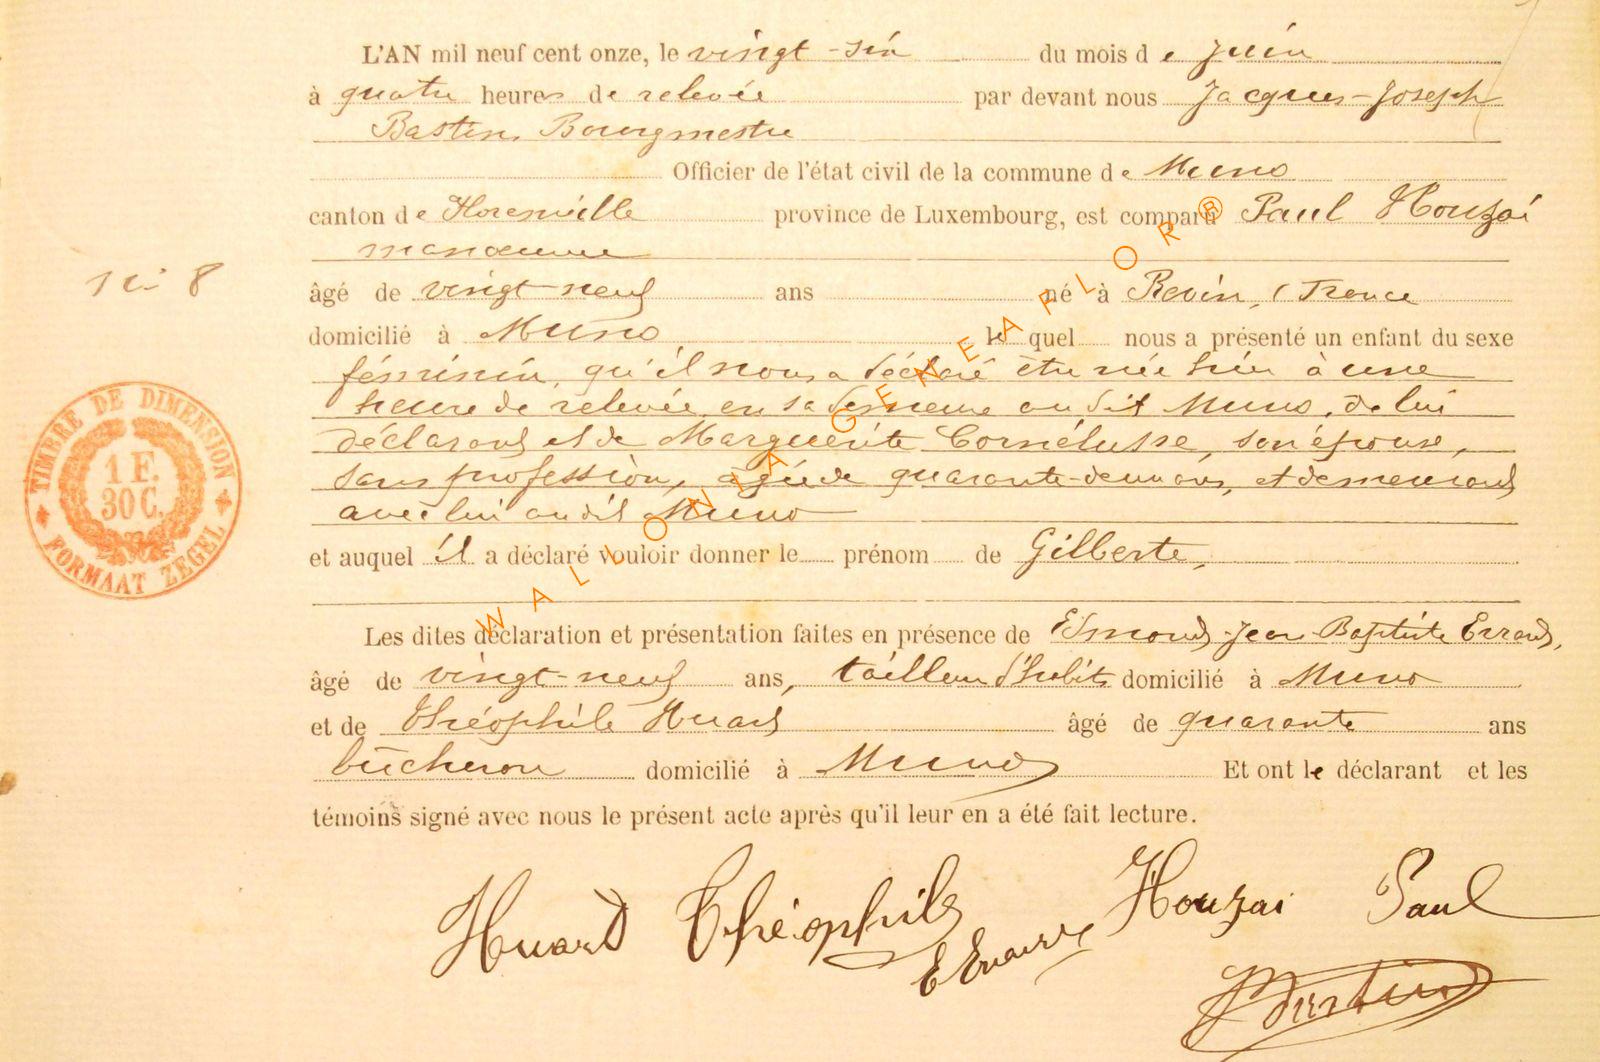 L'AN mil neuf cent onze, le vingt-six du mois de Juin
à quatre heures de relevée par devant nous Jacques-Joseph
Bastin, Bourgmestre
Officier de l'état civil de la commune de Muno
canton de Florenville province de Luxembourg, est comparu Paul Houzai
manoeuvre
N° 8
âgé de vingt-neuf ans né à Revin, (France
domicilié à Muno lequel nous a présenté un enfant du sexe
féminin, qu'il nous a déclaré être née hier à une
heure de relevée, en sa demeure au dit Muno, de lui
déclarant et de Marguerite Cornélusse, son épouse,
sans profession, âgée de quarante-deux ans, et demeurant
avec lui au dit Muno
et auquel il a déclaré vouloir donner le prénom de Gilberte,
Les dites déclaration et présentation faites en présence de Edmond-Jean-Baptiste Errard,
âgé de vingt-neuf ans, tailleur d'habits domicilié à Muno
et de Théophile Huard âgé de quarante ans
bûcheron domicilié à Muno Et ont le déclarant et les
témoins signé avec nous le présent acte après qu'il leur en a été fait lecture.
Huard Théophile Houzai Paul
E Errard
Bastin
TIMBRE DE DIMENSION
1 F.
30 C.
FORMAAT ZEGEL
WALLONIA GENEAFLOR®